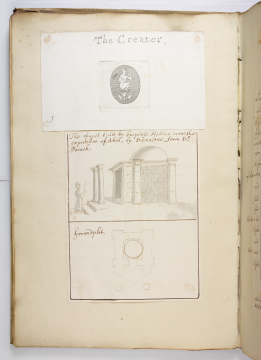 The Creator
The chapel built by Empress Helena over the
sepulchre of Abel, by Damascus, from Dr
Pocock.
Groundplot.